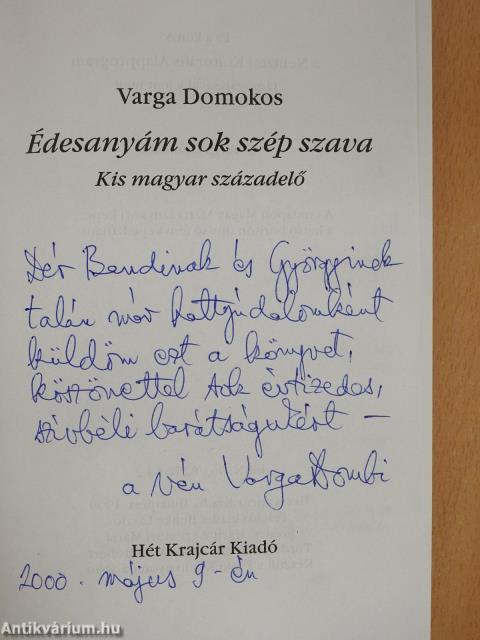 Varga Domokos
Édesanyám sok szép szava
Kis magyar századelő
Dér Bandinak és Györgyinek
talán már hattyúdalomként
küldöm ezt a könyvet,
köszönettel sok évtizedes,
szívbéli barátságukért –
a vén VargaDombi
Hét Krajcár Kiadó
2000. május 9-én
Antikvárium.hu